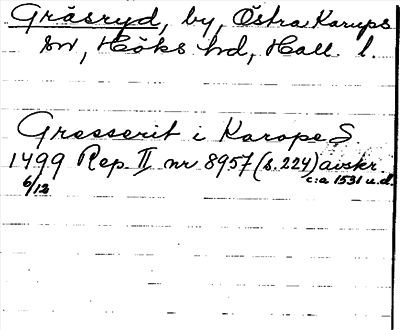 Gräsryd, by, Östra Karups
sn, Höks hd, Hall. l.
Gresserit i Karope S.
1499 Rep. II nr 8957 (s. 224) avskr.
6/12 c:a 1531 u.d.